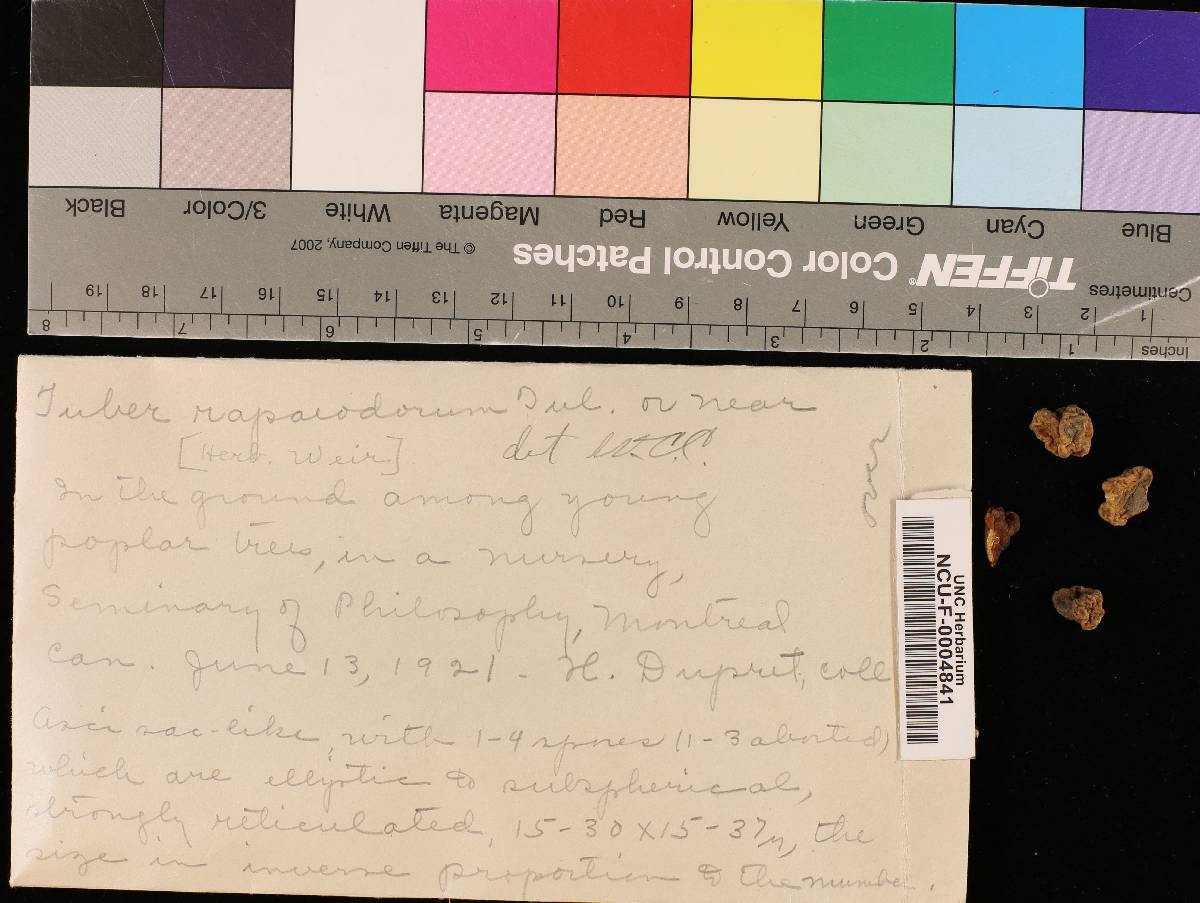 Black 3/Color White Magenta Red Yellow Green Cyan Blue
© The Tiffen Company, 2007
TIFFEN® Color Control Patches
Centimetres
19 18 17 16 15 14 13 12 11 10 9 8 7 6 5 4 3 2 1
8 7 6 5 4 3 2 1
Inches
Tuber rapaeodorum Tul. or near
[Herb. Weir] det W.C.C.
In the ground among young
poplar trees, in a nursery,
Seminary of Philosophy, Montreal
Can. June 13, 1921 - H. Dupret, coll
Asci sac-like, with 1-4 spores (1-3 aborted)
which are elliptic to subspherical,
strongly reticulated, 15-30 x 15-37μ, the
size in inverse proportion to the number.
UNC Herbarium
NCU-F-0004841